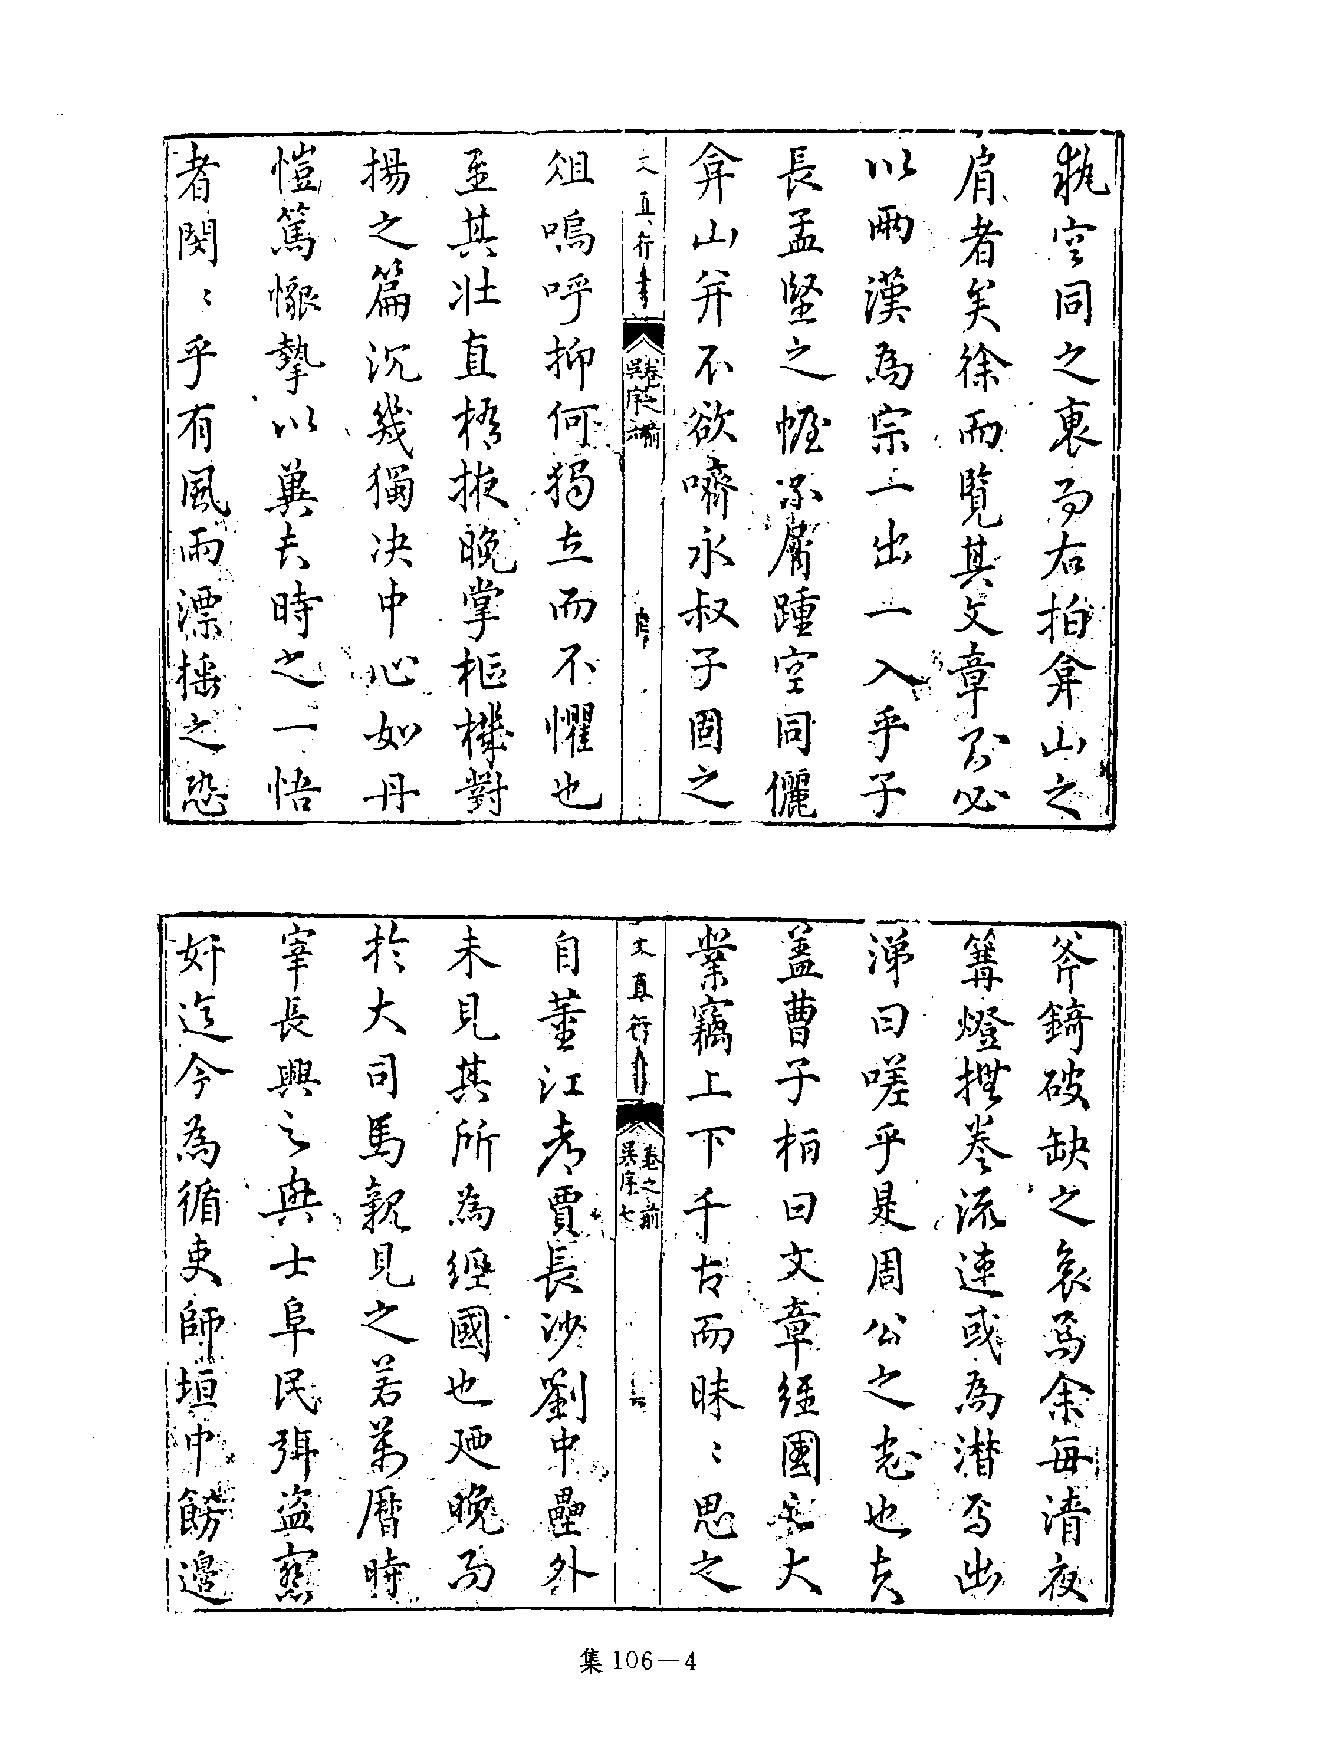 執空同之裏而右拍弇山之
肩者矣徐而覽其文章不必
以兩漢為宗一出一入乎子
長孟堅之幄不屑踵空同儷
弇山并不欲嚌永叔子固之
文直行書
卷之前
吳序六
俎嗚呼抑何獨立而不懼也
至其壯直梧掖晚掌樞機對
揚之篇沉幾獨决中心如丹
愷篤懇摯以冀夫時之一悟
者閔〻乎有風雨漂搖之恐
斧錡破缺之哀焉余每清夜
篝燈撫卷流連或為潸焉出
涕曰嗟乎是周公之志也夫
蓋曹子桓曰文章經國之大
業竊上下千古而昧〻思之
文直行書
卷之前
吳序七
自董江都賈長沙劉中壘外
未見其所為經國也廼晚而
於大司馬親見之若萬曆時
宰長興之興士阜民弭盜察
奸迄今為循吏師垣中餝邊
集106—4